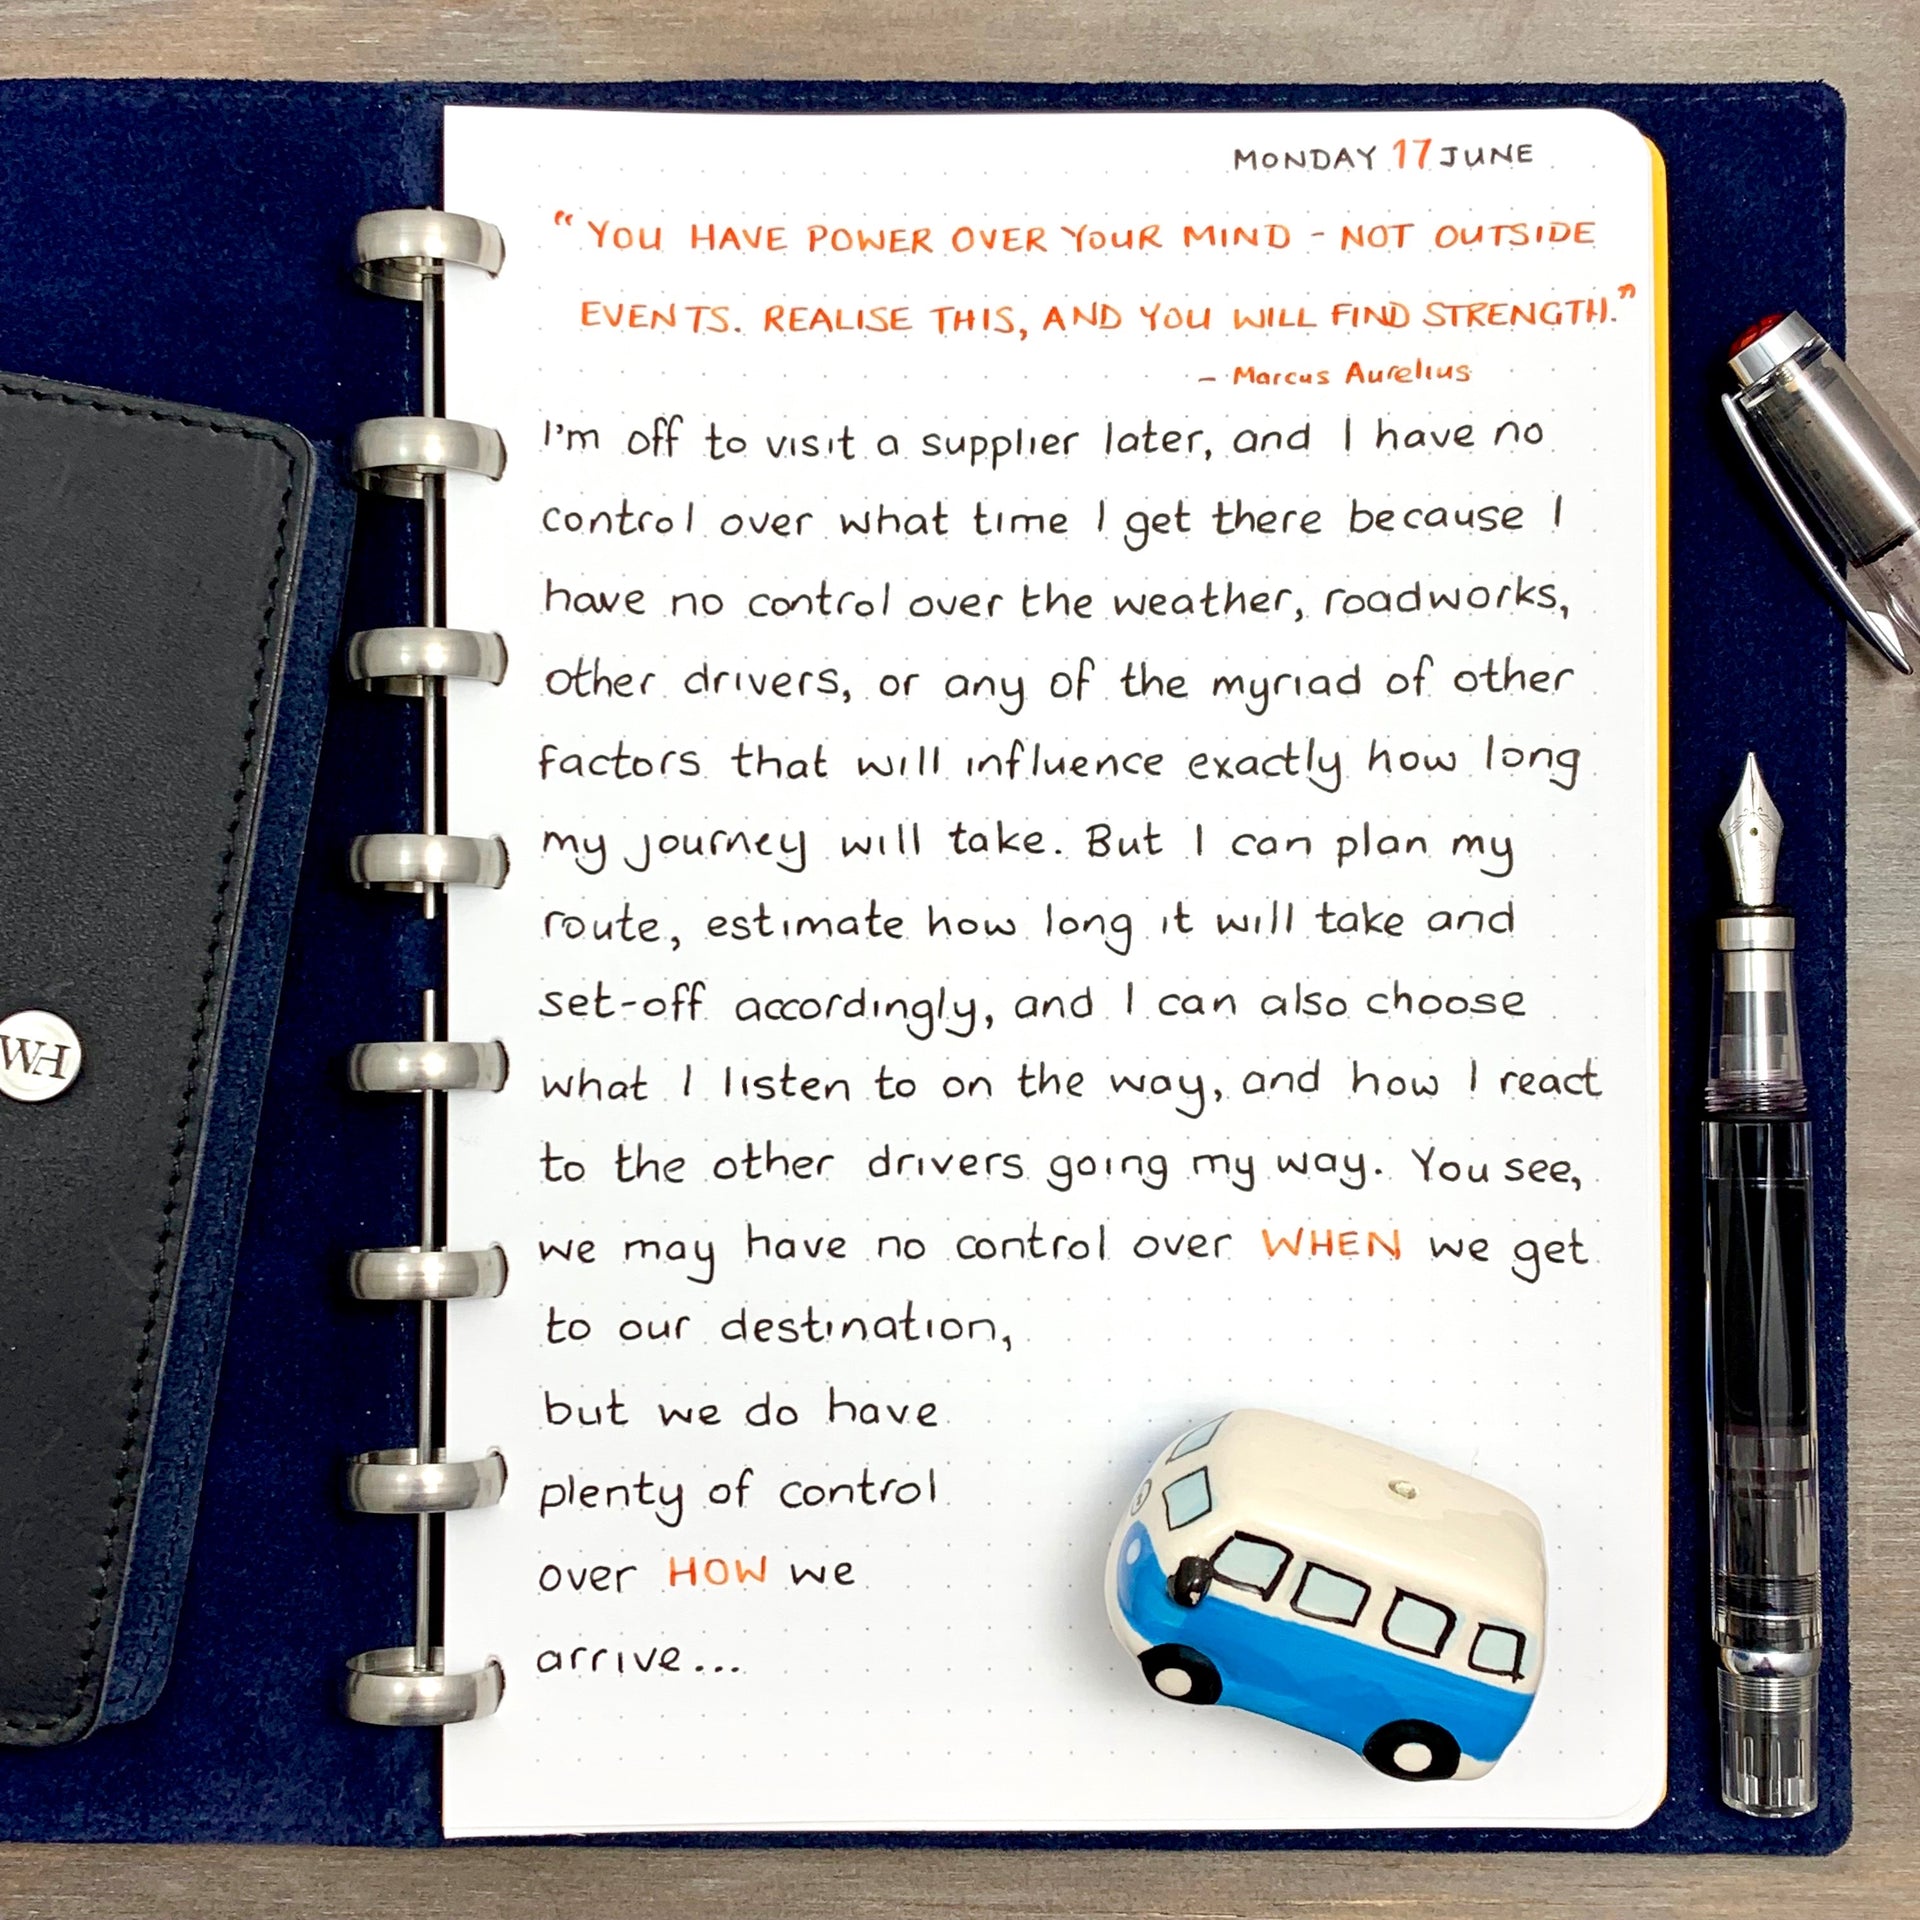 MONDAY 17 JUNE
“YOU HAVE POWER OVER YOUR MIND - NOT OUTSIDE
EVENTS. REALISE THIS, AND YOU WILL FIND STRENGTH.”
- Marcus Aurelius
I'm off to visit a supplier later, and I have no
control over what time I get there because I
have no control over the weather, roadworks,
other drivers, or any of the myriad of other
factors that will influence exactly how long
my journey will take. But I can plan my
route, estimate how long it will take and
set-off accordingly, and I can also choose
what I listen to on the way, and how I react
to the other drivers going my way. You see,
we may have no control over WHEN we get
to our destination,
but we do have
plenty of control
over HOW we
arrive...
WH